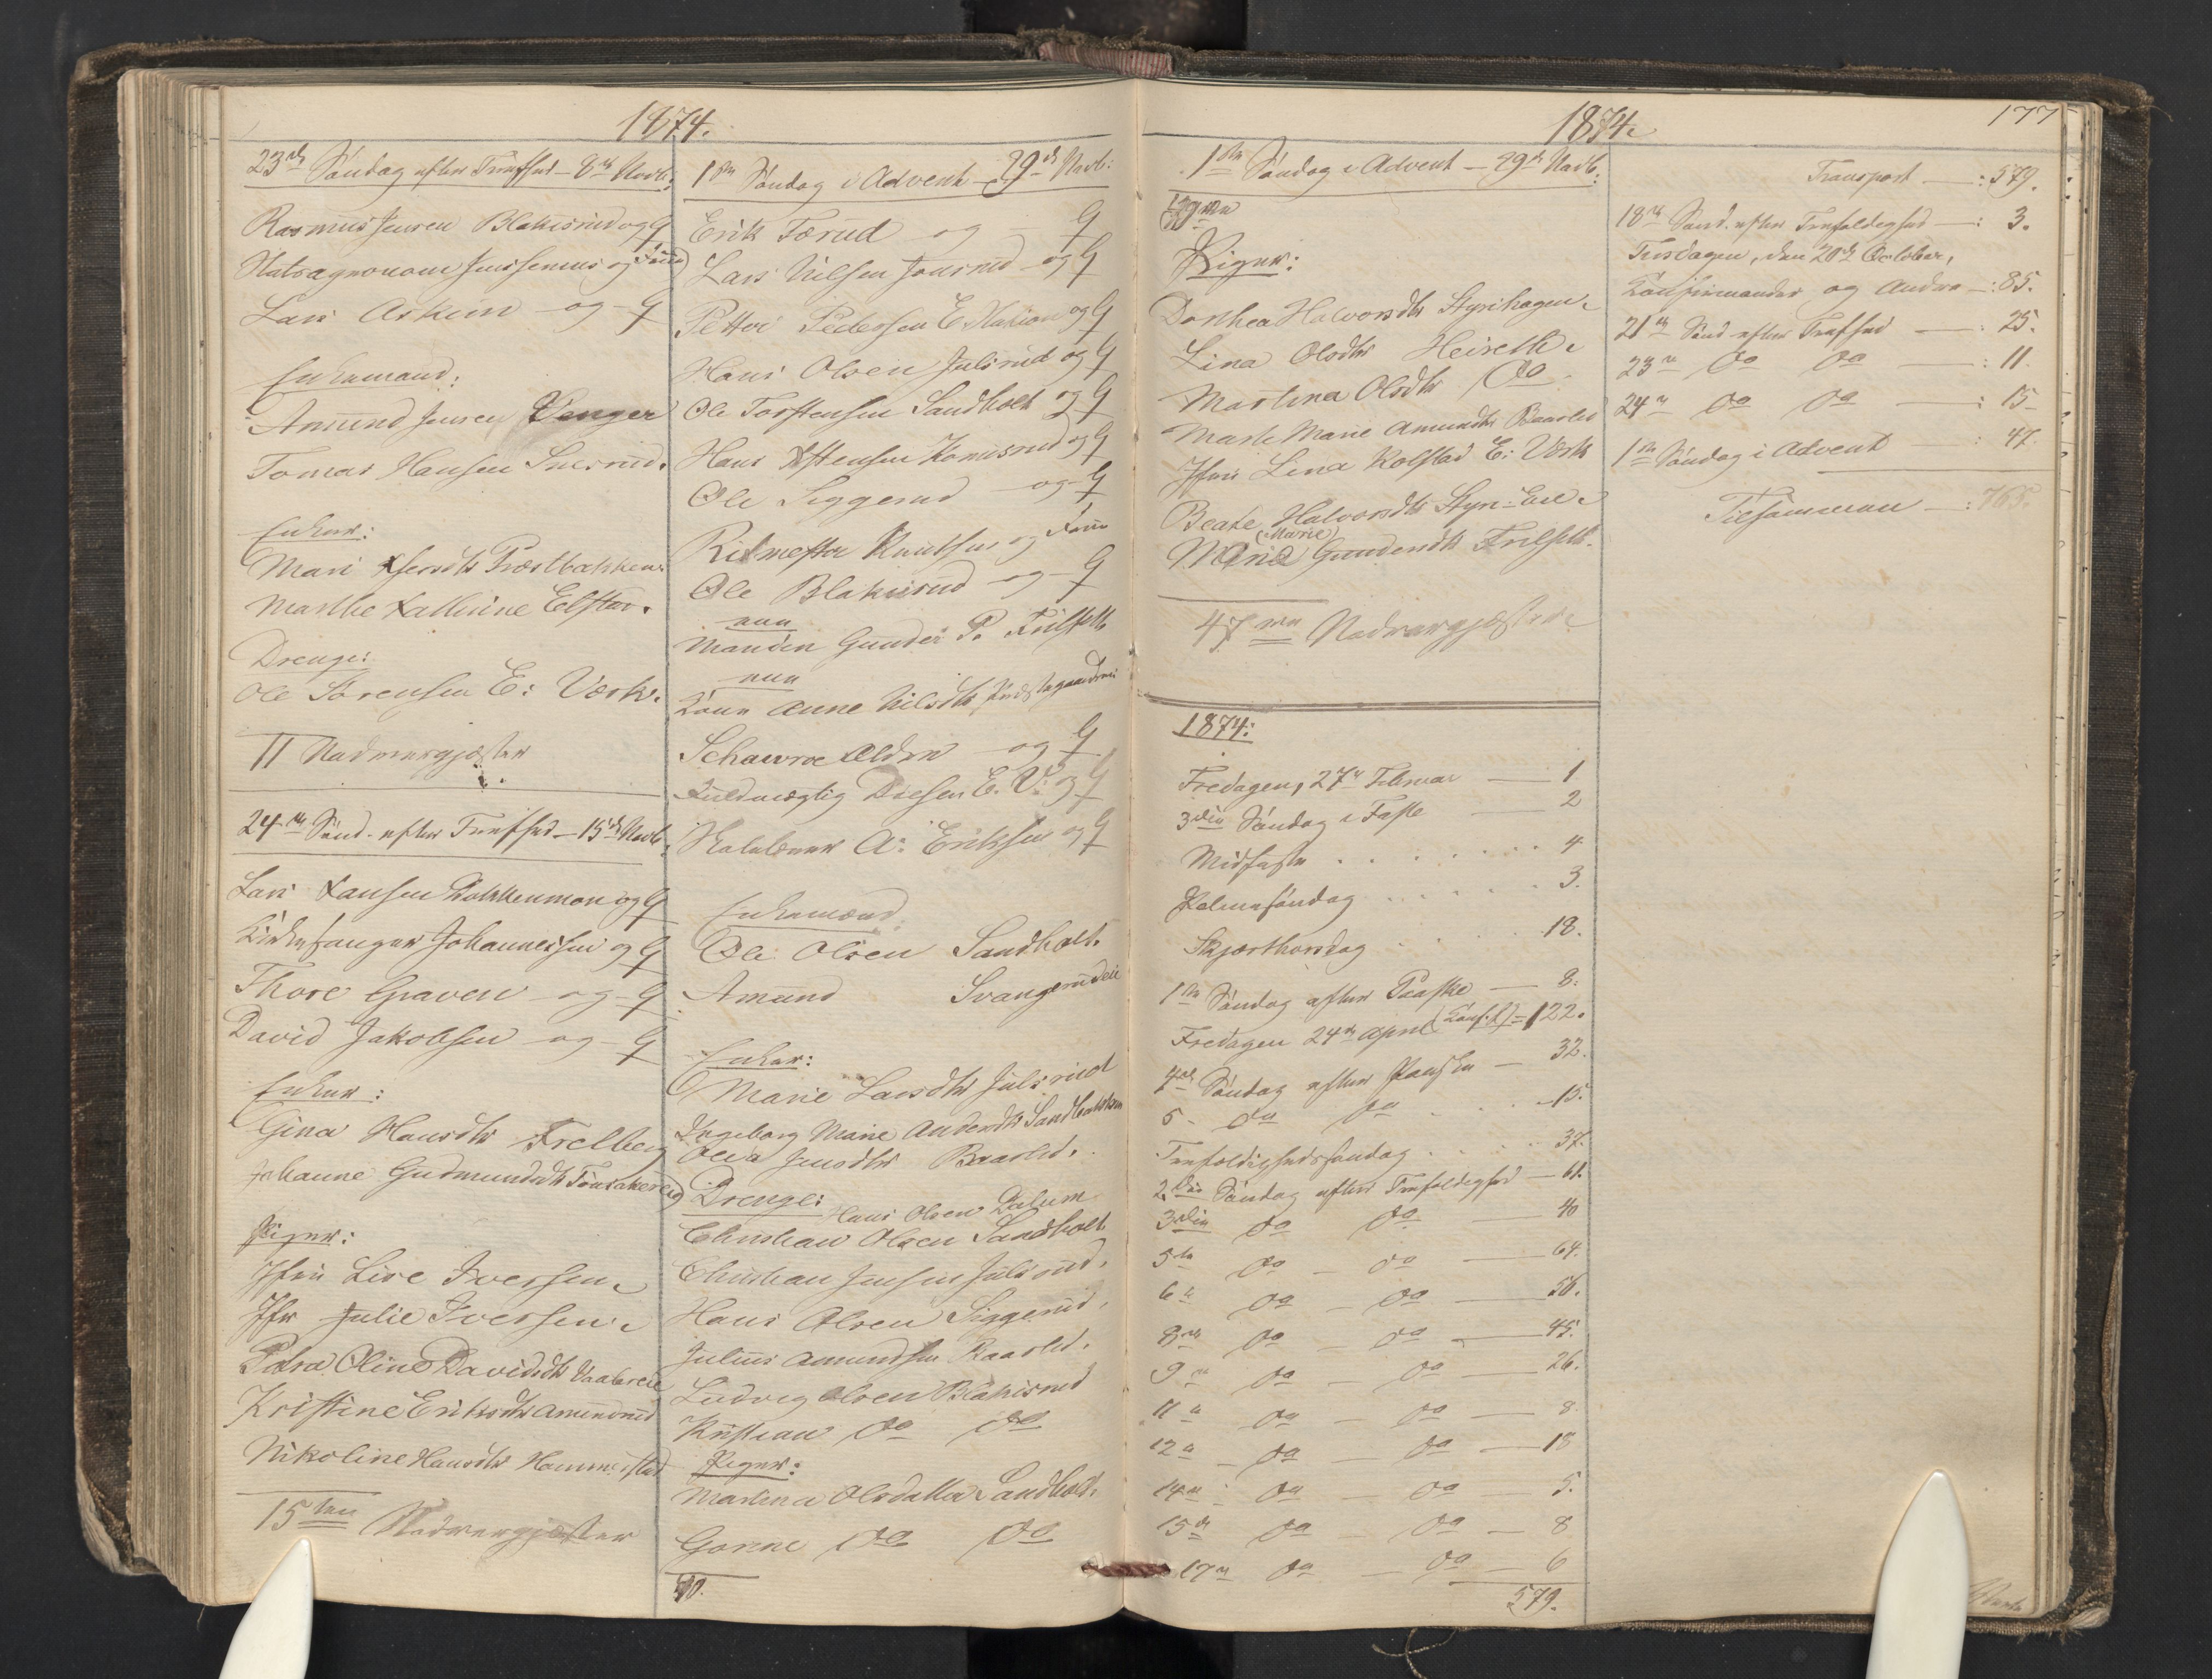 1874.
23de Søndag efter Trefhed – 8de Novb:
Rasmus Jensen Blakisrud og G
Statsagronom Jenssenius og Frue
Lars Askim og G
Enkemænd:
Amund Jensen Venger
Tomas Hansen Snesrud.
Enker:
Mari Præstbakken.
Marthe Kathrine Elstad.
Drenge:
Ole Sørensen E: Værk.
11 Nadvergjæster
24de Sønd. efter Trefhed – 15de Novb:
Lars Hansen Bakkenmon og G
Kirkesanger Johannessen og G
Thore Graven og G
David Jakobsen og G
Enker:
Gina Hansdtr Trelberg
Johanne Gudmundsdtr
Piger:
Jfru Lise Iversen.
Jfr Julie Iversen.
Petra Oline Davidsdtr
Kristine Eriksdtr Amundrud
Nikoline Hansdtr Hammerstad
15ten Nadvergjæster
1ste Søndag i Advent – 29de Novb:
Erik Tærud og G
Lars Nilsen Jonsrud og G
Petter Pedersen E. og G
Hans Olsen Julsrud og G
Ole Torstensen Sandholt og G
Hans Østensen Konisrud og G
Ole Siggerud og G
Ritmester Knutsen og Frue
Ole Blakisrud og G
Manden Gunder P. Frilseth
Kone Anne Nilsdtr
Schawroe Eldre og G
Fuldmægtig Diesen E. V: og G
A: Eriksen og G
Enkemænd
Ole Olsen Sandholt.
Amund Svangerudeie
Enker:
Marie Larsdtr Julsrud
Ingeborg Marie Andersdtr Sandbakken
Olea Jensdtr Baarlid.
Drenge: Hans Olsen Dalum
Christian Olsen Sandholt
Christian Jensen Julsrud.
Hans Olsen Siggerud.
Julius Amundsen Baarlid.
Ludvig Olsen Blakisrud
Kristian do do
Piger:
Martina Olsdatter Sandholt.
Gorine do do
40.
1874.
1ste Søndag i Advent – 29de Novb:
Piger:
Dorthea Halvorsdtr Styrihagen.
Lina Olsdtr Heiseth.
Martina Olsdtr do.
Marte Marie Amundsdtr Baarlid
Jfru Lina Kolstad E: Værk
Beate Halvorsdtr Styri-Eie.
(Marie)
Maria Gundersdtr Frilseth.
47 Nadvergjæster
1874:
Fredagen, 27de Februar — 1
3die Søndag i Faste — 2
Midfaste . . . . . . 4
Palmesøndag . . . . . 3.
Skjærthorsdag . . . . 18.
1ste Søndag efter Paaske — 8.
Fredagen 24de April (Konf.) = 122.
4de Søndag efter Paaske — 32.
5 do do . . . 15.
Trefoldighedssøndag . . . 37.
2den Søndag efter Trefoldighed — 61.
3die do do — 40
5te do – do — 64.
6te do – do — 56.
8de do – do — 45.
9de do do — 26.
11te do – do — 8.
12te do do — 18
14de do – do — 5.
15de do – do — 8
17de do – do — 6
579.
177
Transport — : 579.
18de Sønd. efter Trefoldighed — : 3.
Tirsdagen, den 20de October,
Konfirmander og Andre — : 85.
21de Sønd efter Trefhed — : 25.
23de do do — : 11.
24de do do — : 15
1ste Søndag i Advent : 47.
Tilsammen — : 765.